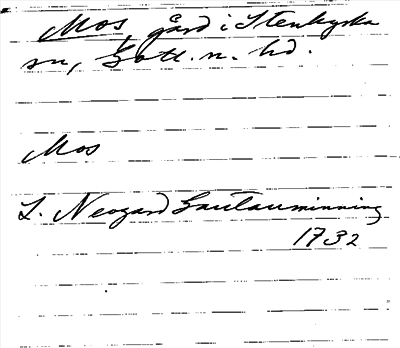 Mos, gård i Stenkyrka
sn, Gotl. n. hd.
Mos
L. Neogard Gautauminning
1732